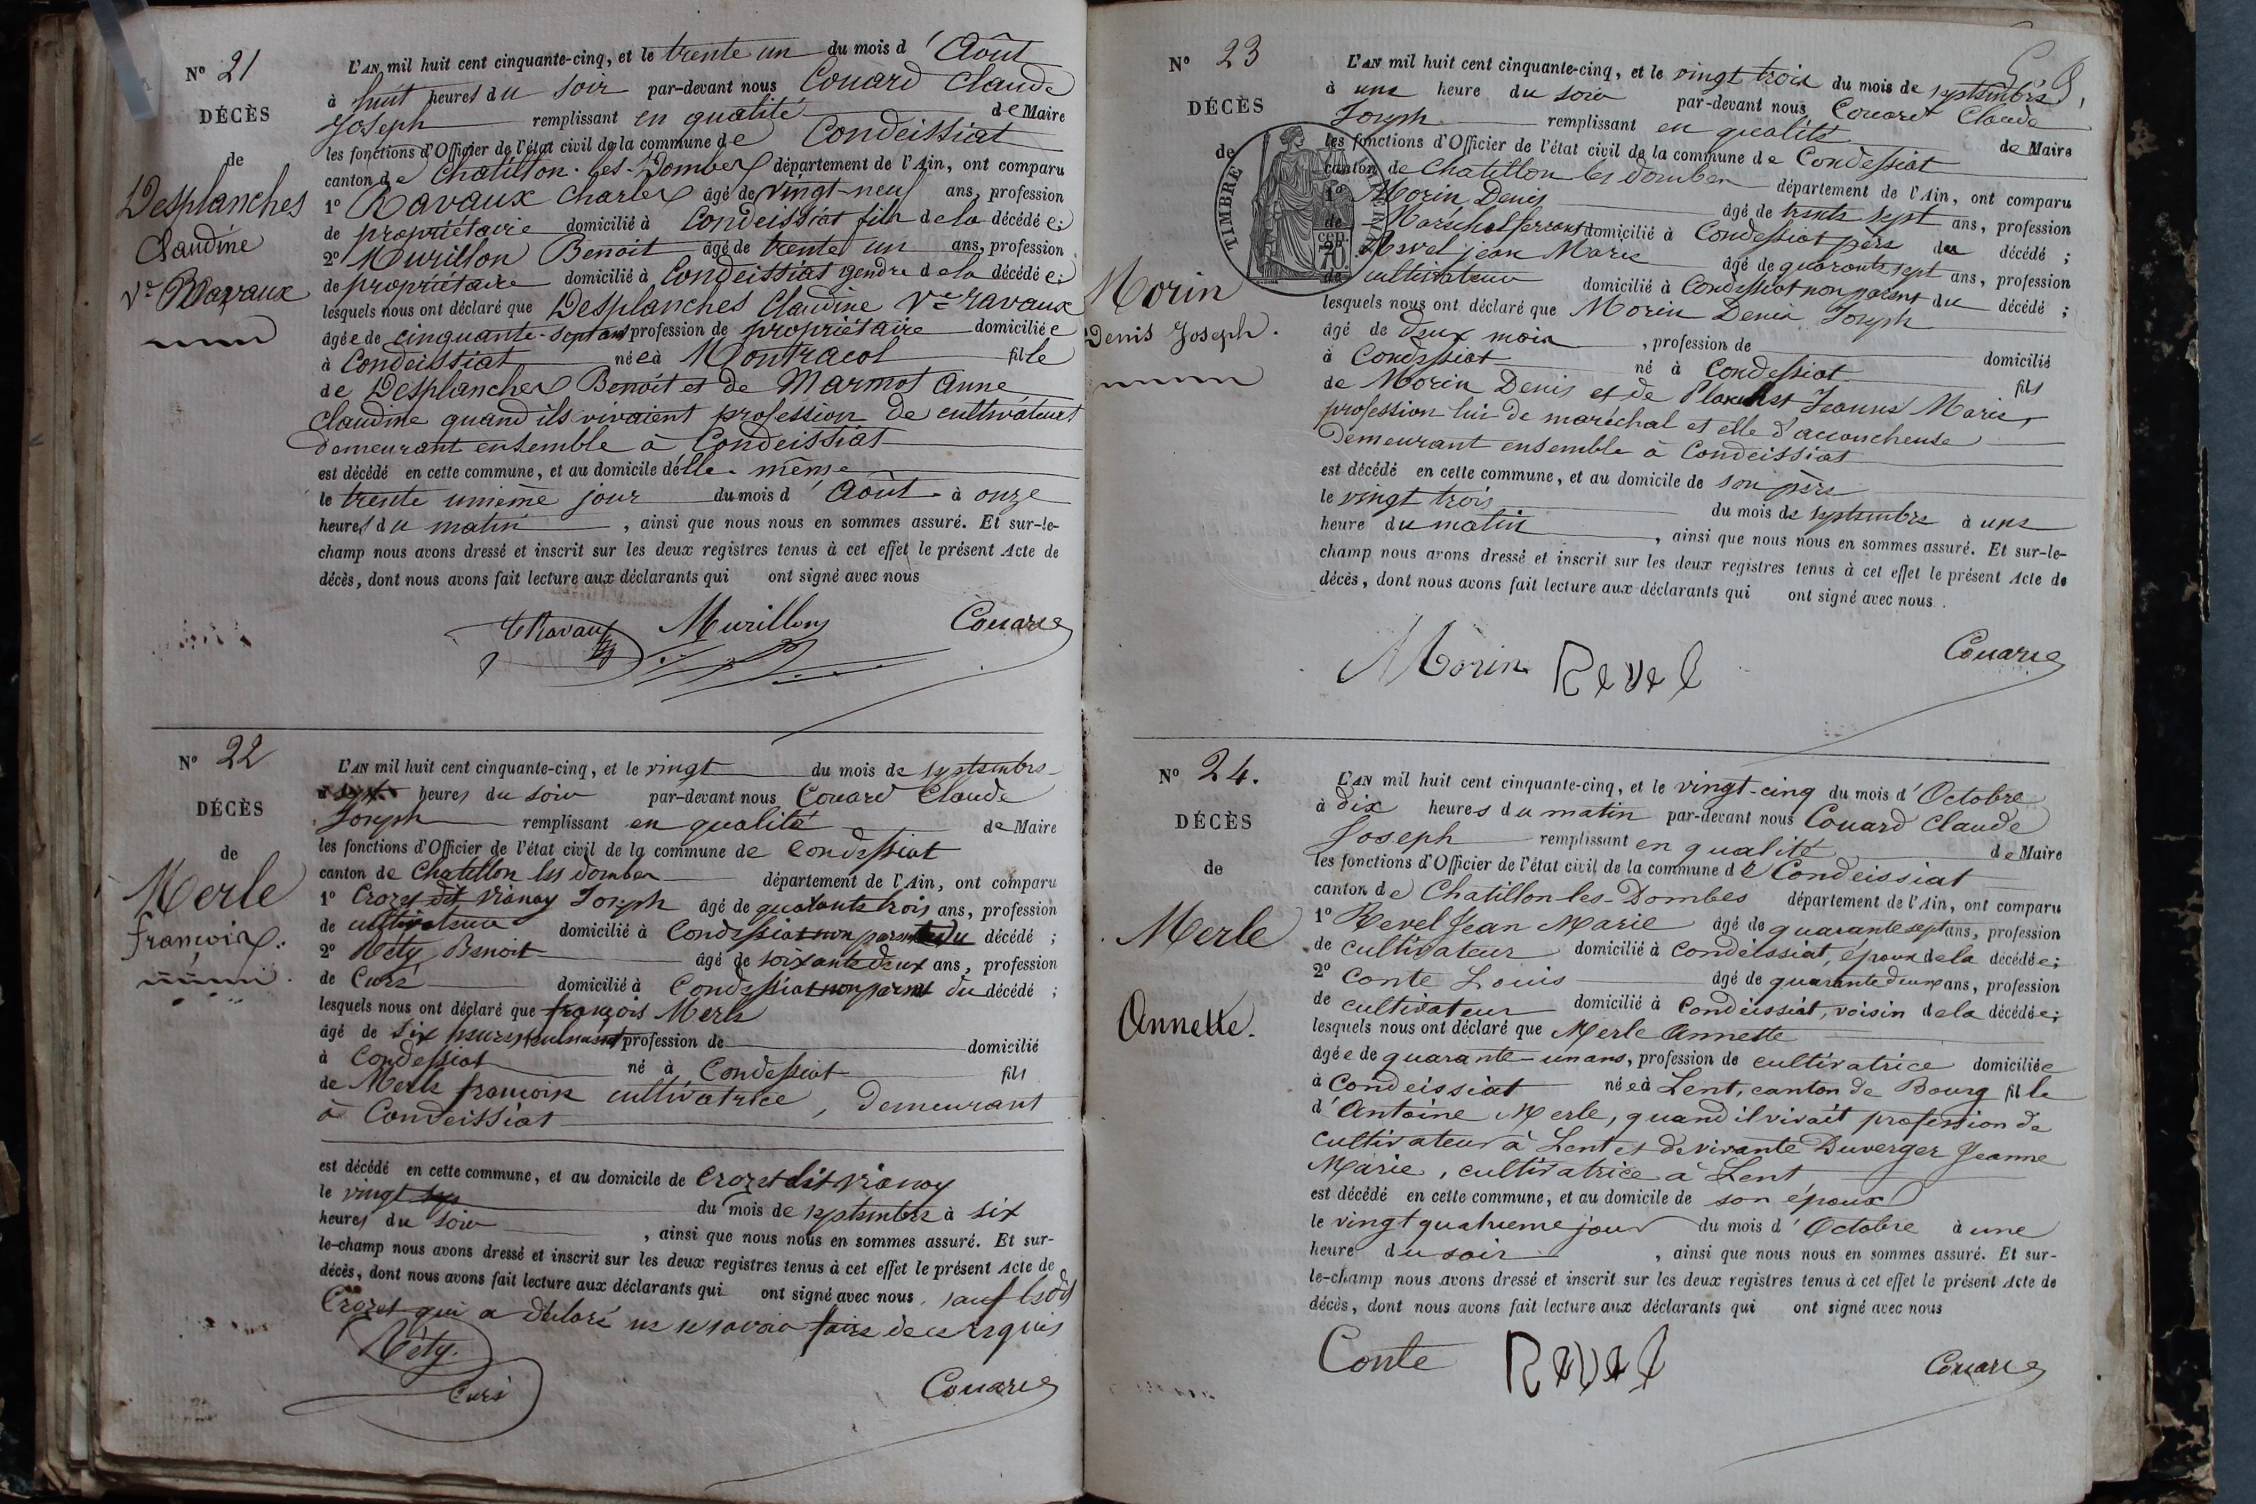 Nº 21
DÉCÈS
de
Desplanches
Claudine
Vᵉ Ravaux
L'AN mil huit cent cinquante-cinq, et le trente un du mois d'Août
à huit heures du soir par-devant nous Couard Claude
Joseph remplissant en qualité de Maire
les fonctions d'Officier de l'état civil de la commune de Condeissiat
canton de Chatillon-les-Dombes département de l'Ain, ont comparu
1º Ravaux Charles âgé de vingt-neuf ans, profession
de propriétaire domicilié à Condeissiat fils de la décédée;
2º Murillon Benoit âgé de trente un ans, profession
de propriétaire domicilié à Condeissiat gendre de la décédée;
lesquels nous ont déclaré que Desplanches Claudine Vᵉ ravaux
âgée de cinquante-sept ans profession de propriétaire domiciliée
à Condeissiat née à Montracol fille
de Desplanches Benoit et de Marmot Anne
Claudine quand ils vivaient profession de cultivateurs
demeurant ensemble à Condeissiat
est décédé en cette commune, et au domicile d'elle-même
le trente unième jour du mois d'Août à onze
heures du matin, ainsi que nous nous en sommes assuré. Et sur-le-
champ nous avons dressé et inscrit sur les deux registres tenus à cet effet le présent Acte de
décès, dont nous avons fait lecture aux déclarants qui ont signé avec nous
Ravaux Murillon Couard
Nº 22
DÉCÈS
de
Merle
françois
L'AN mil huit cent cinquante-cinq, et le vingt du mois de septembre
à sept heures du soir par-devant nous Couard Claude
Joseph remplissant en qualité de Maire
les fonctions d'Officier de l'état civil de la commune de Condessiat
canton de Chatillon les dombes département de l'Ain, ont comparu
1º Crozet dit Vianay Joseph âgé de quarante trois ans, profession
de cultivateur domicilié à Condessiat non parent du décédé;
2º Réty Benoit âgé de soixante deux ans, profession
de Curé domicilié à Condessiat non parent du décédé;
lesquels nous ont déclaré que françois Merle
âgé de six heures seulement profession de domicilié
à Condessiat né à Condessiat fils
de Merle françoise cultivatrice, demeurant
à Condeissiat
est décédé en cette commune, et au domicile de Crozet dit Vianay
le vingt du mois de septembre à six
heures du soir, ainsi que nous nous en sommes assuré. Et sur-
le-champ nous avons dressé et inscrit sur les deux registres tenus à cet effet le présent Acte de
décès, dont nous avons fait lecture aux déclarants qui ont signé avec nous, sauf le dit
Crozet qui a déclaré ne savoir faire de ce requis
Réty
Curé Couard
Nº 23
DÉCÈS
de
Morin
Denis Joseph.
TIMBRE
70
L'AN mil huit cent cinquante-cinq, et le vingt trois du mois de septembre
à une heure du soir par-devant nous Couard Claude
Joseph remplissant en qualité de Maire
les fonctions d'Officier de l'état civil de la commune de Condessiat
canton de Chatillon les dombes département de l'Ain, ont comparu
1º Morin Denis âgé de trente sept ans, profession
de Maréchal ferrant domicilié à Condessiat père du décédé;
2º Revel jean Marie âgé de quarante sept ans, profession
de cultivateur domicilié à Condessiat non parent du décédé;
lesquels nous ont déclaré que Morin Denis Joseph
âgé de deux mois, profession de domicilié
à Condessiat né à Condessiat fils
de Morin Denis et de Jeanne Marie,
profession lui de maréchal et elle d'accoucheuse
Demeurant ensemble à Condeissiat
est décédé en cette commune, et au domicile de son père
le vingt trois du mois de septembre à une
heure du matin, ainsi que nous nous en sommes assuré. Et sur-le-
champ nous avons dressé et inscrit sur les deux registres tenus à cet effet le présent Acte de
décès, dont nous avons fait lecture aux déclarants qui ont signé avec nous.
Morin Revel Couard
Nº 24.
DÉCÈS
de
Merle
Annette.
L'AN mil huit cent cinquante-cinq, et le vingt-cinq du mois d'Octobre
à dix heures du matin par-devant nous Couard Claude
Joseph remplissant en qualité de Maire
les fonctions d'Officier de l'état civil de la commune de Condeissiat
canton de Chatillon-les-Dombes département de l'Ain, ont comparu
1º Revel Jean Marie âgé de quarante sept ans, profession
de cultivateur domicilié à Condeissiat, époux de la décédée;
2º Conte Louis âgé de quarante deux ans, profession
de cultivateur domicilié à Condeissiat, voisin de la décédée;
lesquels nous ont déclaré que Merle Annette
âgée de quarante-un ans, profession de cultivatrice domiciliée
à Condeissiat née à Lent, canton de Bourg fille
d'Antoine Merle, quand il vivait profession de
cultivateur à Lent et de vivante Duverger Jeanne
Marie, cultivatrice à Lent
est décédé en cette commune, et au domicile de son époux
le vingt quatrième jour du mois d'Octobre à une
heure du soir, ainsi que nous nous en sommes assuré. Et sur-
le-champ nous avons dressé et inscrit sur les deux registres tenus à cet effet le présent Acte de
décès, dont nous avons fait lecture aux déclarants qui ont signé avec nous
Conte Revel Couard